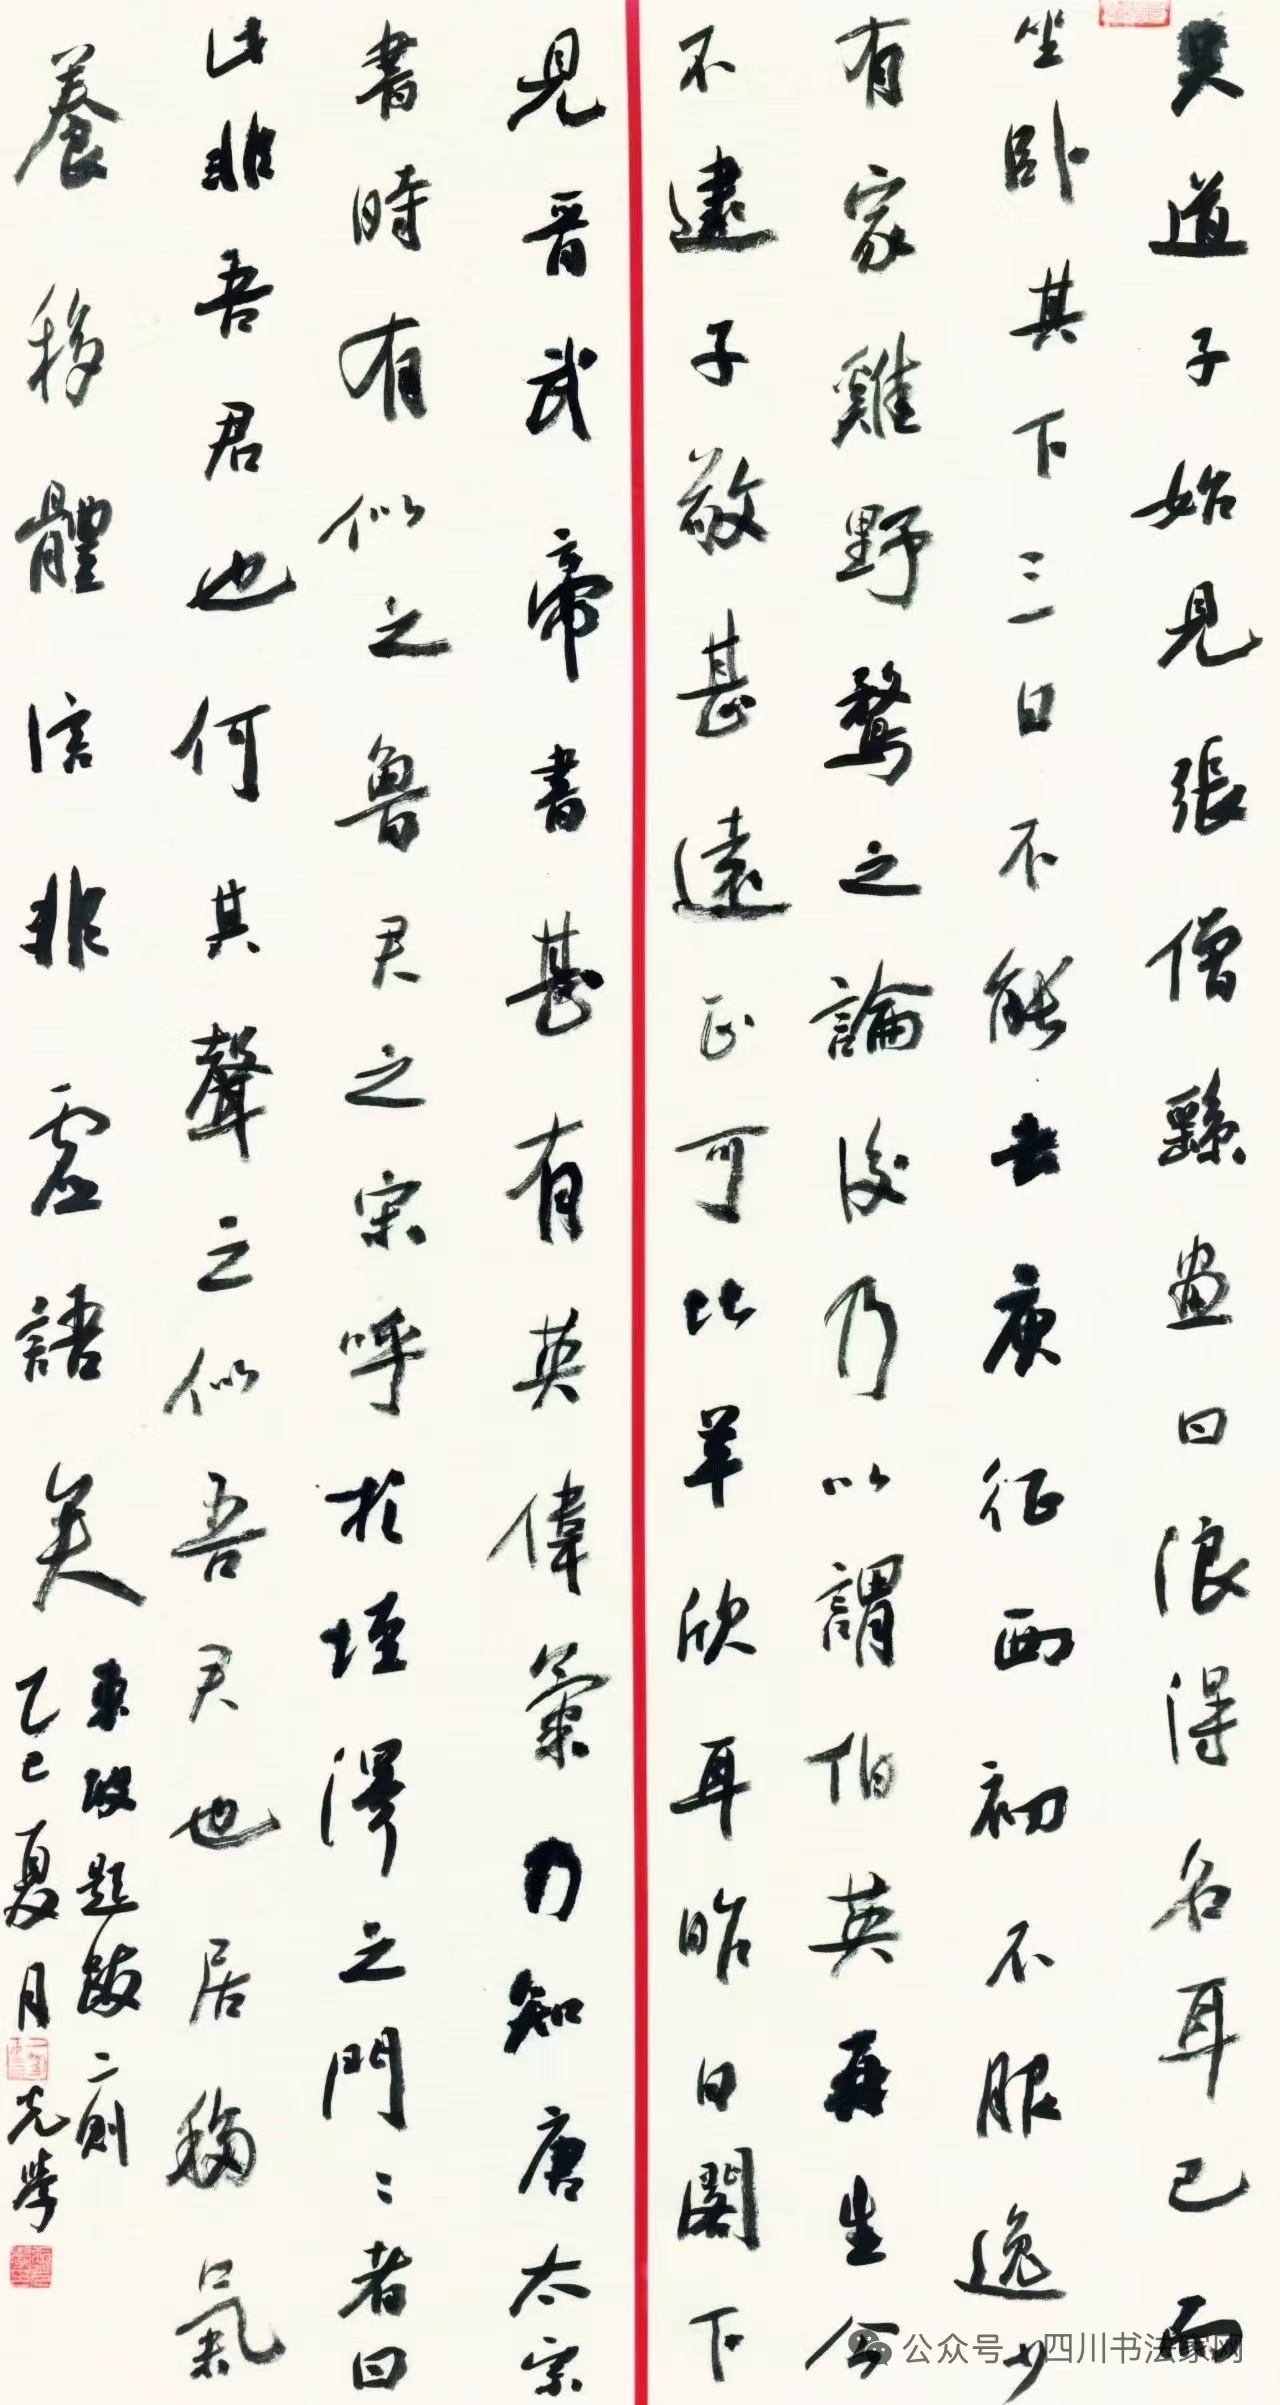 吴道子始見張僧繇畫曰浪得名耳已而
坐卧其下三日不能去庾征西初不服逸少
有家雞野鶩之論後乃以謂伯英再生今
不逮子敬甚遠正可比羊欣耳昨日閣下
見晉武帝書甚有英偉氣乃知唐太宗
書時有似之魯君之宋呼於垤澤之門門者曰
此非吾君也何其聲之似吾君也居移氣
養移體信非虛語矣
東坡題跋二則
乙巳夏月
光學
公众号 四川书法家网